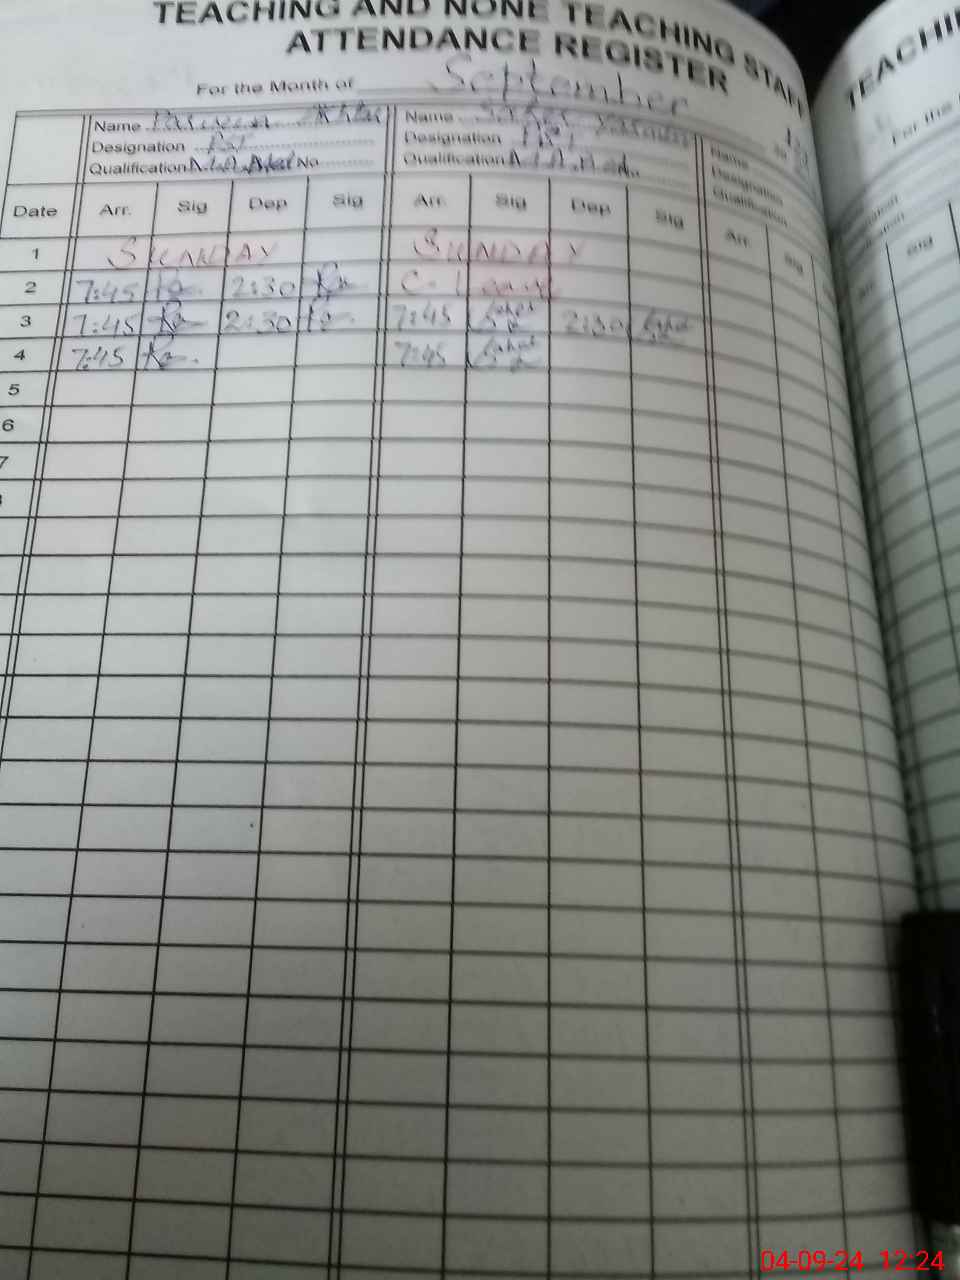 TEACHING AND NONE TEACHING STAFF
ATTENDANCE REGISTER
TEACHI
For the Month of September
For the
Name Parveen Akhtar Name
Designation PST Designation PST Name
Qualification M.A, B.ed No Qualification M.A, B.ed Designation
Qualification
Date Arr. Sig Dep Sig Arr. Sig Dep Sig Arr. Sig Sig
1 SUNDAY SUNDAY
2 7:45 2:30 C. Leave
3 7:45 2:30 7:45 2:30
4 7:45 7:45
5
6
7
04-09-24 12:24